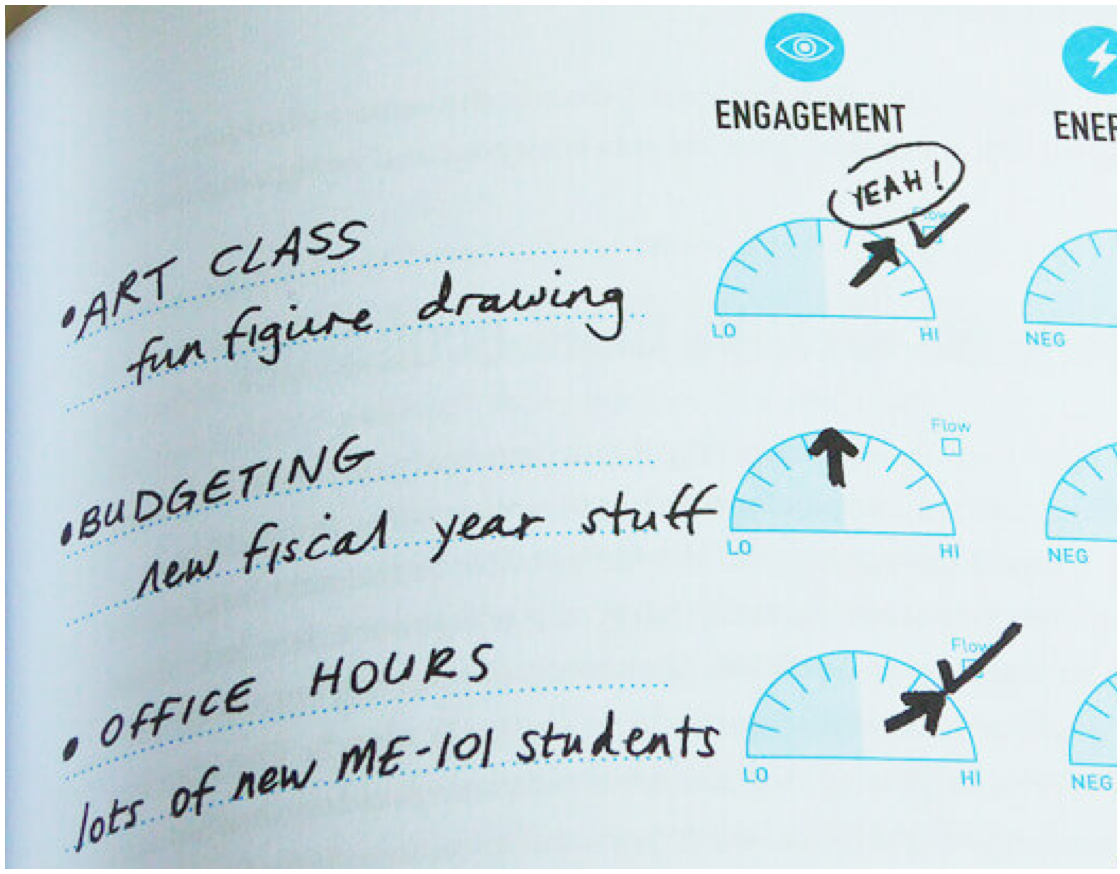 ENGAGEMENT
YEAH!
• ART CLASS
fun figiure drawing
LO HI
NEG
• BUDGETING
new fiscal year stuff
Flow
LO HI
NEG
• OFFICE HOURS
lots of new ME-101 students
Flow
LO HI
NEG